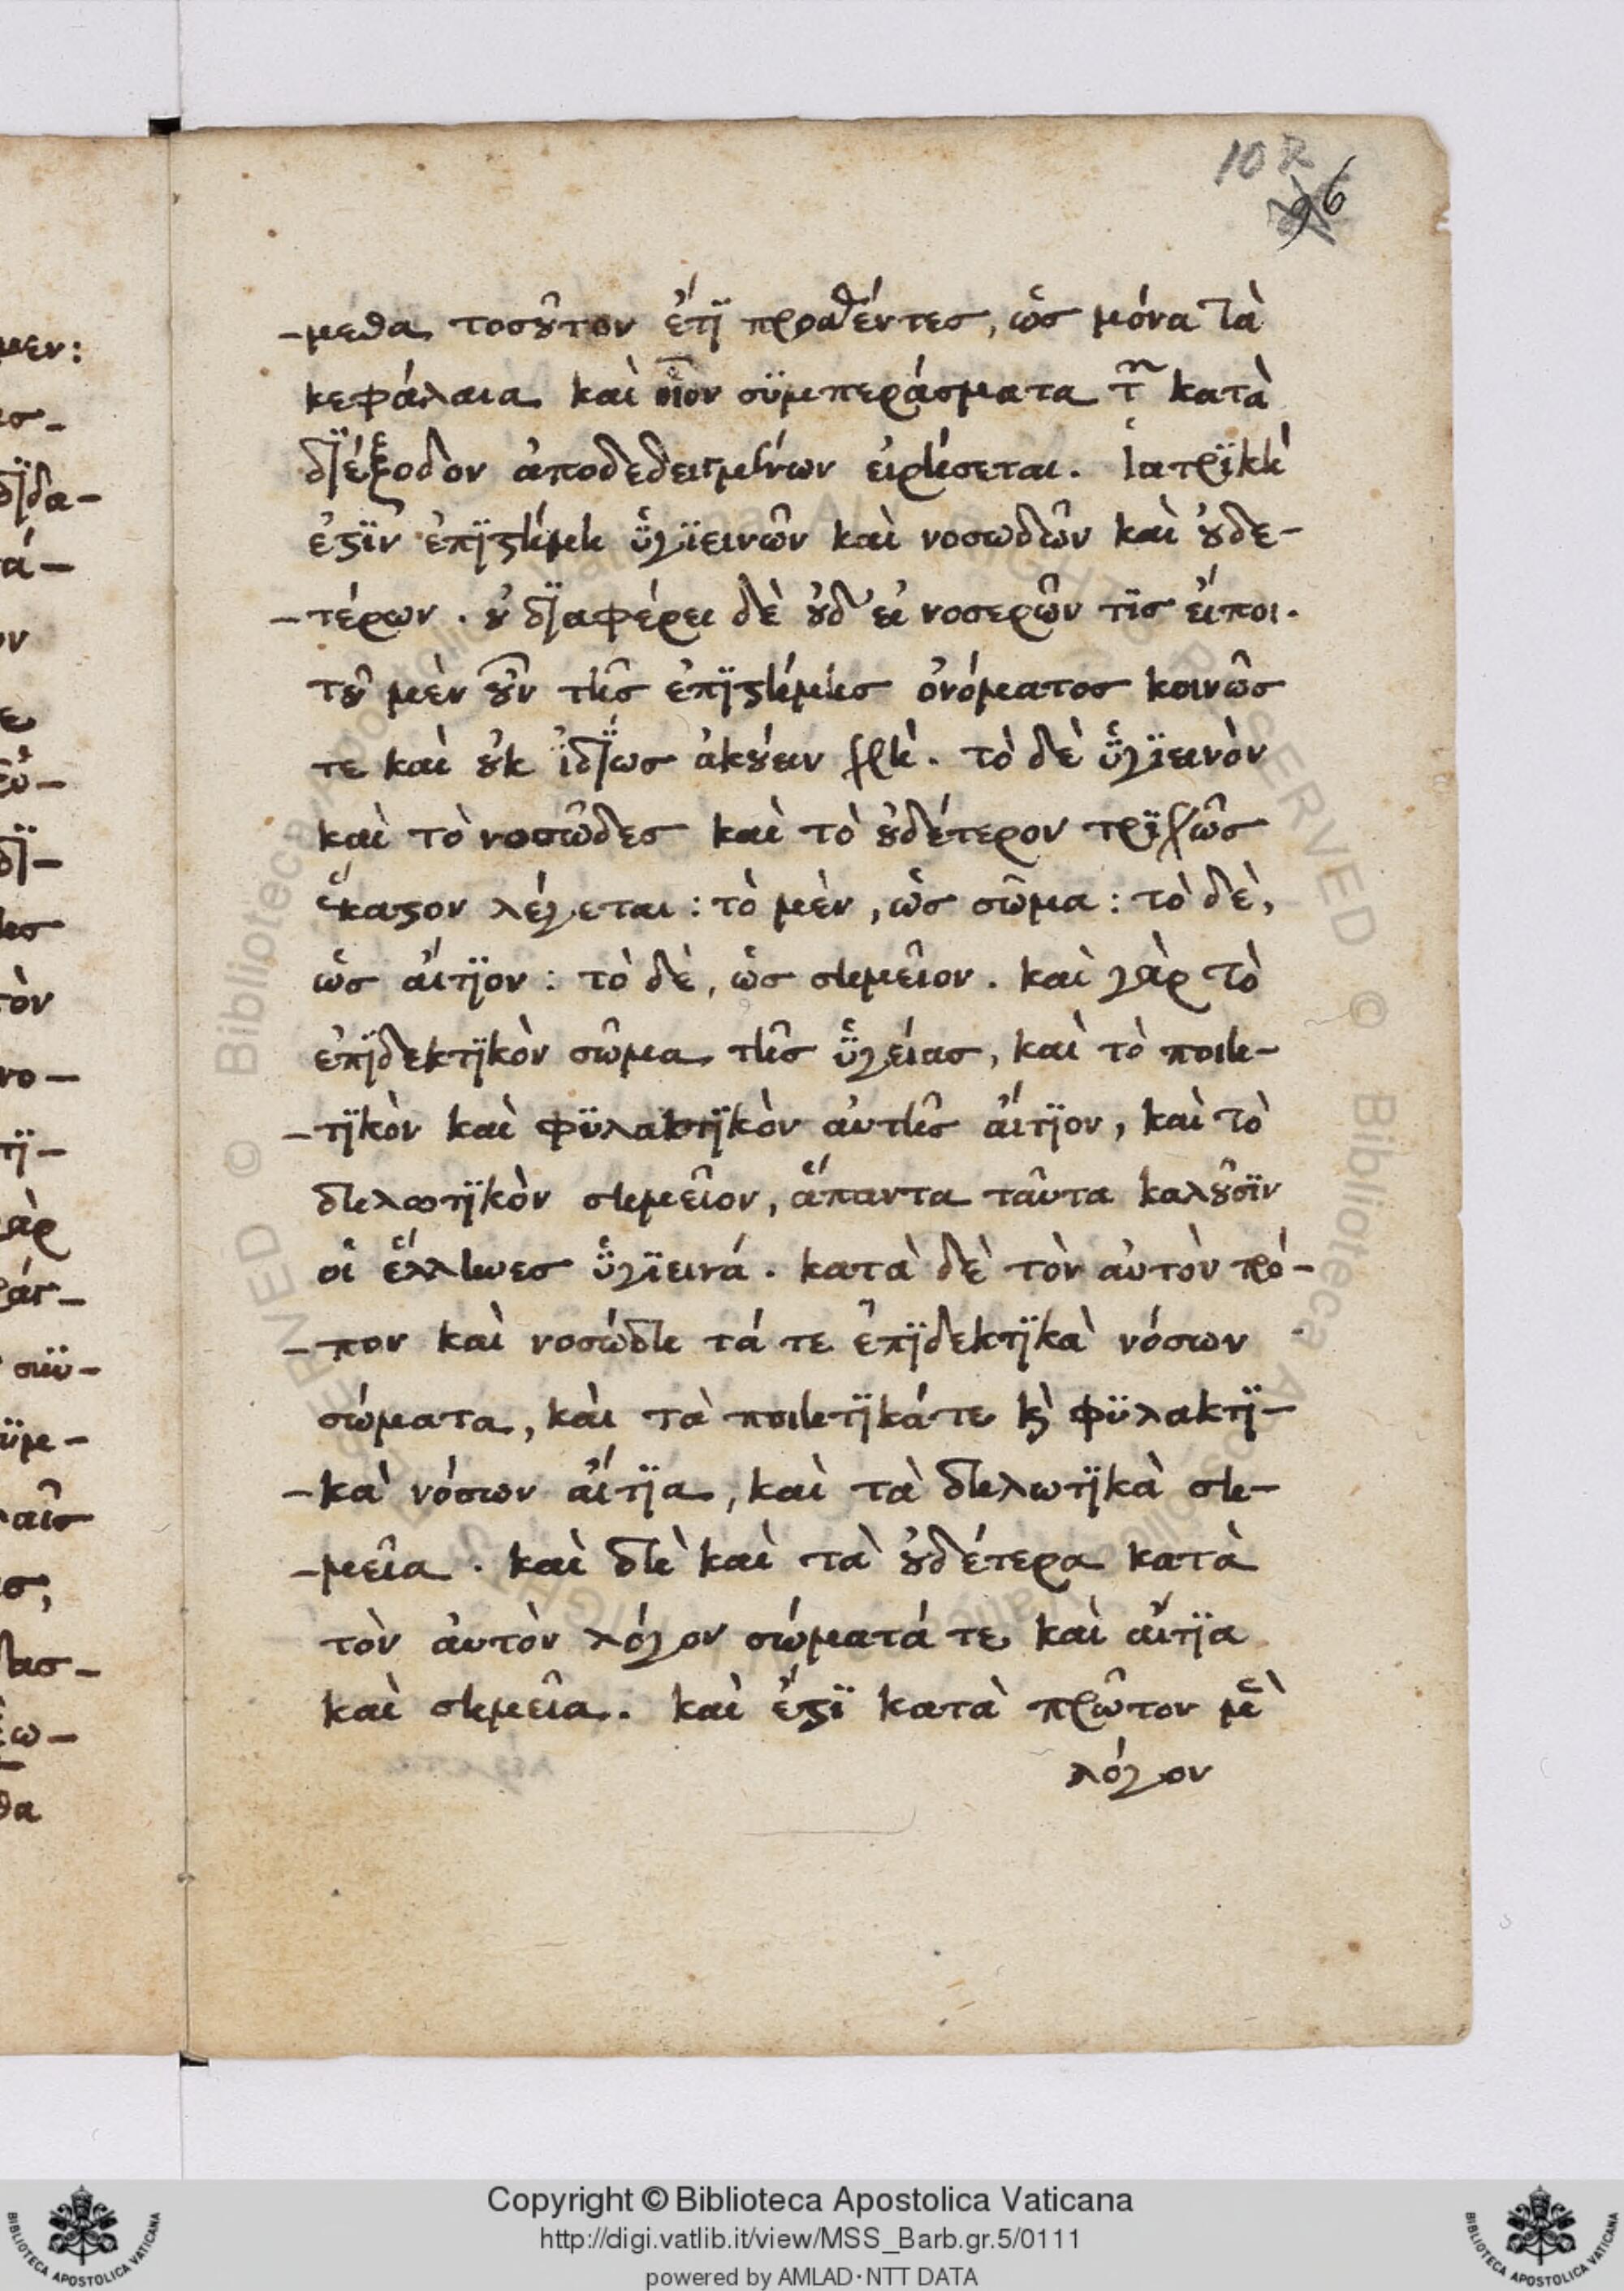 102
96
-μεθα τοσοῦτον ἔτϊ προσθέντες, ὡς μόνα τὰ
κεφάλαια καὶ οἷον συμπεράσματα τῶν κατὰ
διέξοδον ἀποδεδειγμένων εἰρήσεται. Ἰατρϊκή
ἐστϊν ἐπϊστήμη ὑγϊεινῶν καὶ νοσωδῶν καὶ οὐδε-
-τέρων. οὐ δϊαφέρει δὲ οὐδ' εἰ νοσερῶν τϊς εἴποι.
τοῦ μὲν οὖν τῆς ἐπϊστήμης ὀνόματος κοινῶς
τε καὶ οὐκ ἰδϊως ἀκούειν χρή. τὸ δὲ ὑγϊεινὸν
καὶ τὸ νοσῶδες καὶ τὸ οὐδέτερον τρϊχῶς
ἕκαστον λέγεται: τὸ μὲν, ὡς σῶμα: τὸ δὲ,
ὡς αἴτϊον: τὸ δὲ, ὡς σημεῖον. καὶ γὰρ τὸ
ἐπϊδεκτϊκὸν σῶμα τῆς ὑγείας, καὶ τὸ ποιη-
-τϊκὸν καὶ φϋλακτϊκὸν αὐτῆς αἴτϊον, καὶ τὸ
δηλωτϊκὸν σημεῖον, ἅπαντα ταῦτα καλοῦσϊν
οἱ ἕλληνες ὑγϊεινά. κατὰ δὲ τὸν αὐτὸν τρό-
-πον καὶ νοσώδη τά τε ἐπϊδεκτϊκὰ νόσων
σώματα, καὶ τὰ ποιητϊκά τε καὶ φϋλακτϊ-
-κὰ νόσων αἴτϊα, καὶ τὰ δηλωτϊκὰ ση-
-μεῖα. καὶ δὴ καὶ τὰ οὐδέτερα κατὰ
τὸν αὐτὸν λόγον σώματά τε καὶ αἴτϊα
καὶ σημεῖα. καὶ ἔστϊ κατὰ πρῶτον μὲν
λόγον
Copyright © Biblioteca Apostolica Vaticana
http://digi.vatlib.it/view/MSS_Barb.gr.5/0111
powered by AMLAD·NTT DATA